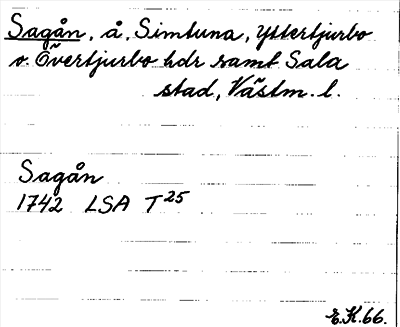 Sagån, å, Simtuna, Yttertjurbo
o. Övertjurbo hdr samt Sala
stad, Västm. l.
Sagån
1742 LSA T25
E.K.66.